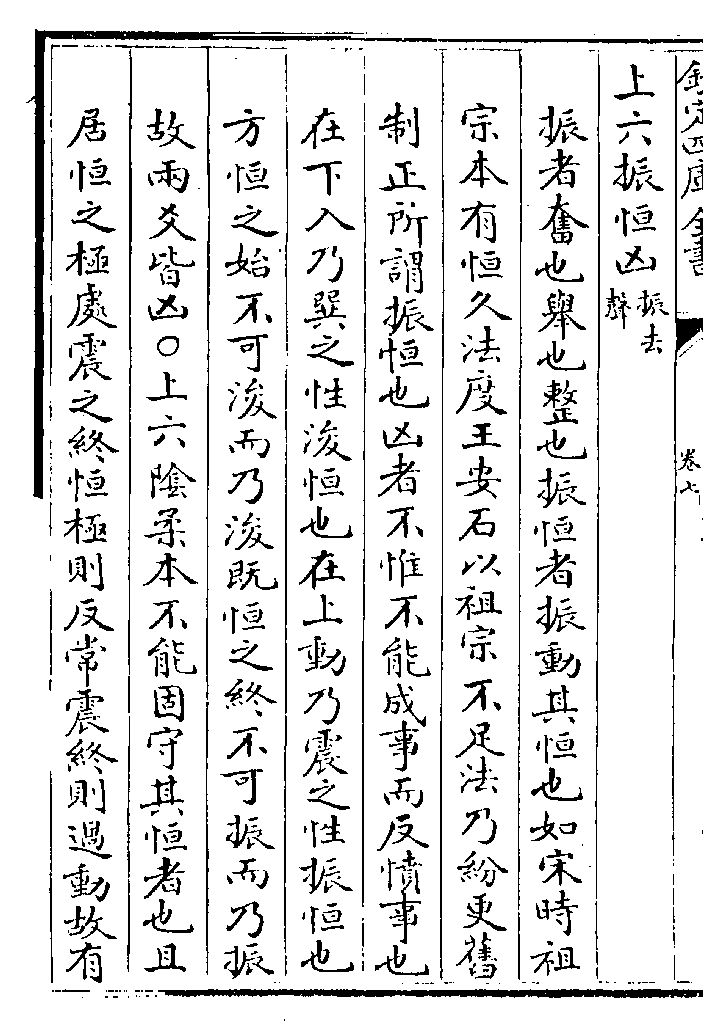 欽定四庫全書
卷七
上六振恒凶振去聲
振者奮也舉也整也振恒者振動其恒也如宋時祖
宗本有恒久法度王安石以祖宗不足法乃紛更舊
制正所謂振恒也凶者不惟不能成事而反憤事也
在下入乃巽之性浚恒也在上動乃震之性振恒也
方恒之始不可浚而乃浚既恒之終不可振而乃振
故兩爻皆凶○上六陰柔本不能固守其恒者也且
居恒之極處震之終恒極則反常震終則過動故有